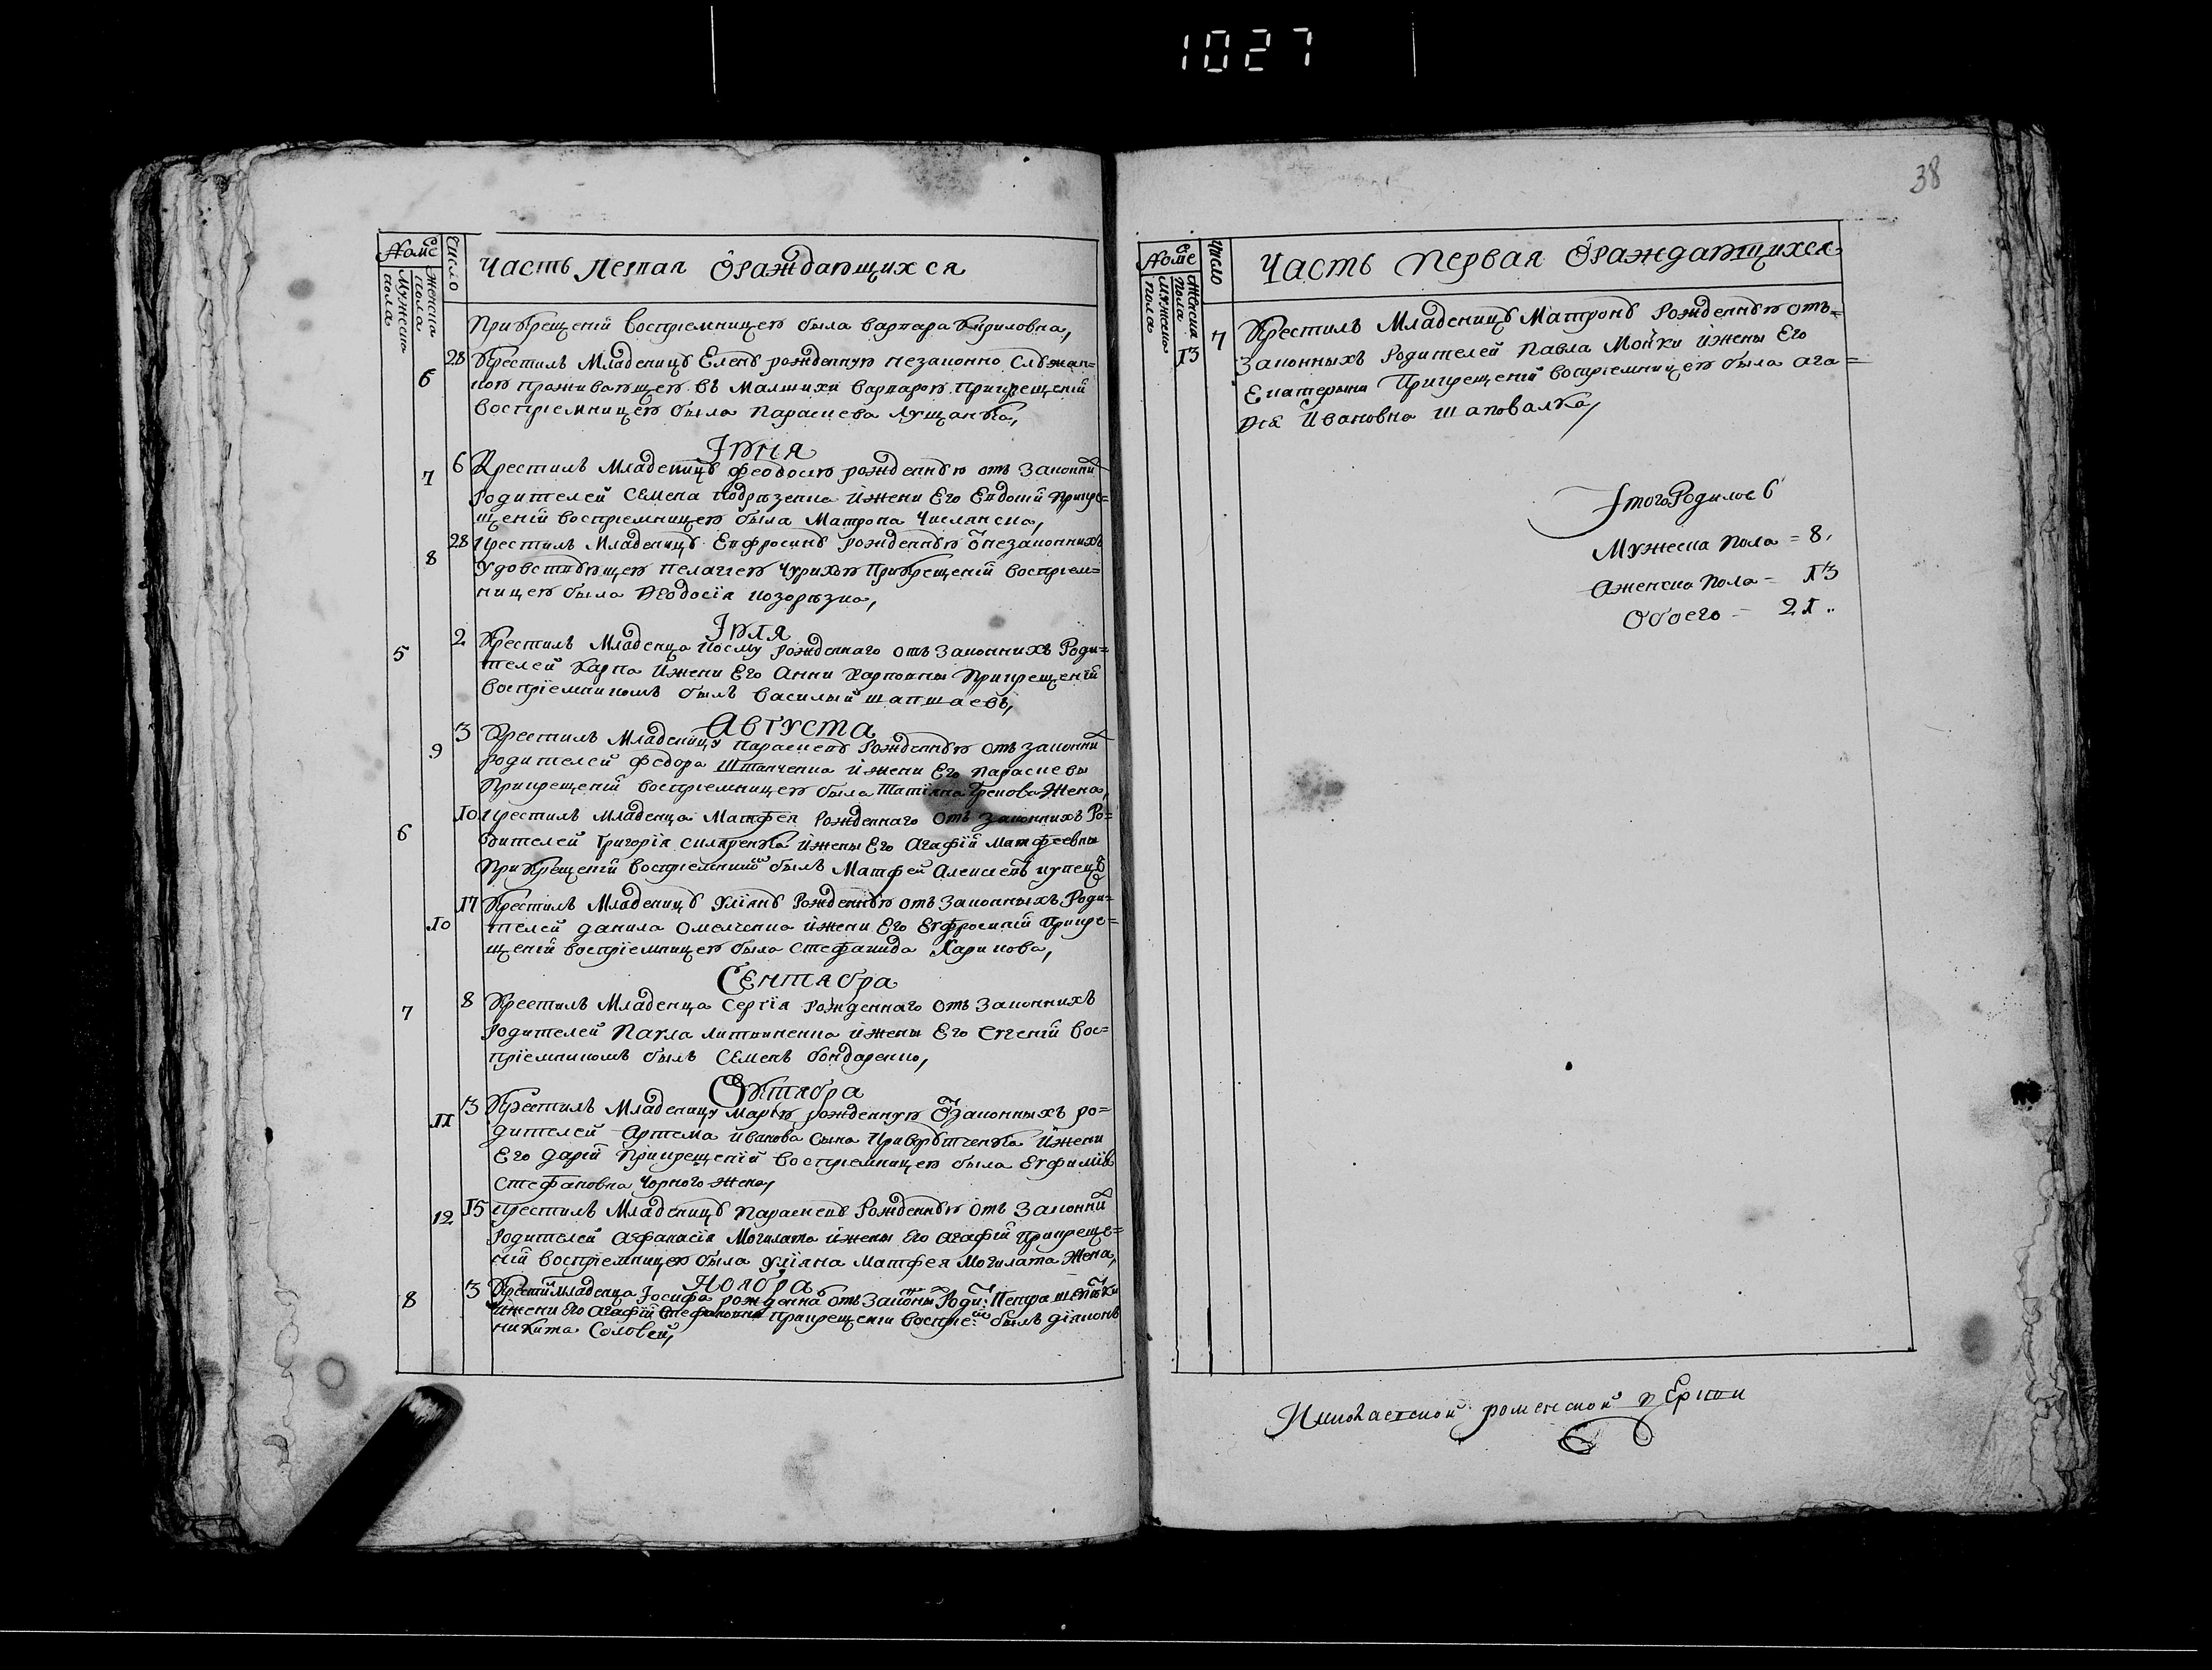 1027
38
Номе
Число
Женска пола
Мужеска пола
Часть первая ѽ раждающихся
При крещеніи восприемницею была варвара Кириловна,
6 28 Крестилъ Младеницꙋ Еленꙋ рожденную незаконно Слꙋжащою проживающею въ
восприемницею была Параскева Лущанка,
Іюня
7 6 Крестилъ Младеницꙋ феодосию рожденнꙋю отъ законнихъ
родителей Семена Подрѣзенка и жени Его Евдокіи при кре=
щеніи восприемницею была Матрона
8 28 крестилъ Младеницꙋ Евфросинꙋ рожденнꙋю ѿ незаконнихъ
Пелагиею При крещеніи восприем=
ницею была Ѳеодосія
Іюля
5 2 Крестилъ Младенца рожденнаго отъ законнихъ Роди=
телей Карпа и жени Его Анни Карповны При крещеніи
восприемникомъ былъ василый
Августа
9 3 Крестилъ Младеницу параскевꙋ Рожденнꙋю отъ законнихъ
родителей федора и жени Его параскевы
При крещеніи восприемницею была Татіяна Грекова Жена,
6 10 крестилъ младенца Матфея Рожденнаго отъ законнихъ Ро=
дителей Григорія и жены Его Агафіи матфеевны
При крещеніи восприемникомъ былъ Матфей Алексеевъ купецъ
10 17 Крестилъ Младеницꙋ Улїянꙋ Рожденнꙋю отъ законныхъ Роди=
телей данила Омелченка и жени Его Евфросиніи При кре=
щеніи восприемницею была Стефанида Харикова,
Сентября
7 8 Крестилъ Младенца Сергія Рожденнаго отъ законнихъ
родителей Павла литвиненка и жены Его Евгеніи вос=
приемникомъ былъ Семенъ бондаренко,
Октября
11 3 Крестилъ Младеницу марію рожденную ѿ законныхъ ро=
дителей Артема иванова сына и жени
Его даріи При крещеніи восприемницею была Евфимія
Стефановна Чорного жена,
12 15 крестилъ Младеницꙋ параскевꙋ Рожденнꙋю отъ законнихъ
родителей Афанасія Могилата и жены Его Агафіи При креще=
ніи восприемницею была улїяна матфея Могилата Жена,
Ноября
8 3 Крестилъ Младенца Іосифа рожденна отъ законны Роди: Петра
и жени Его Агафіи Стефановни При крещеніи воспріе: былъ діяконъ
никита Соловей,
Номе
Число
Женска пола
Мужеска пола
Часть первая ѽ раждающихся
13 7 Крестилъ Младеницꙋ Матронꙋ Рожденнꙋю отъ=
законныхъ Родителей Павла Мойки и жены Его
Екатерыни При крещеніи восприемницею была ага=
фія Ивановна шаповалка,
Итого Родилось
Мужеска пола = 8,
А женска пола - 13
Обоего - 21..
роменской церкви